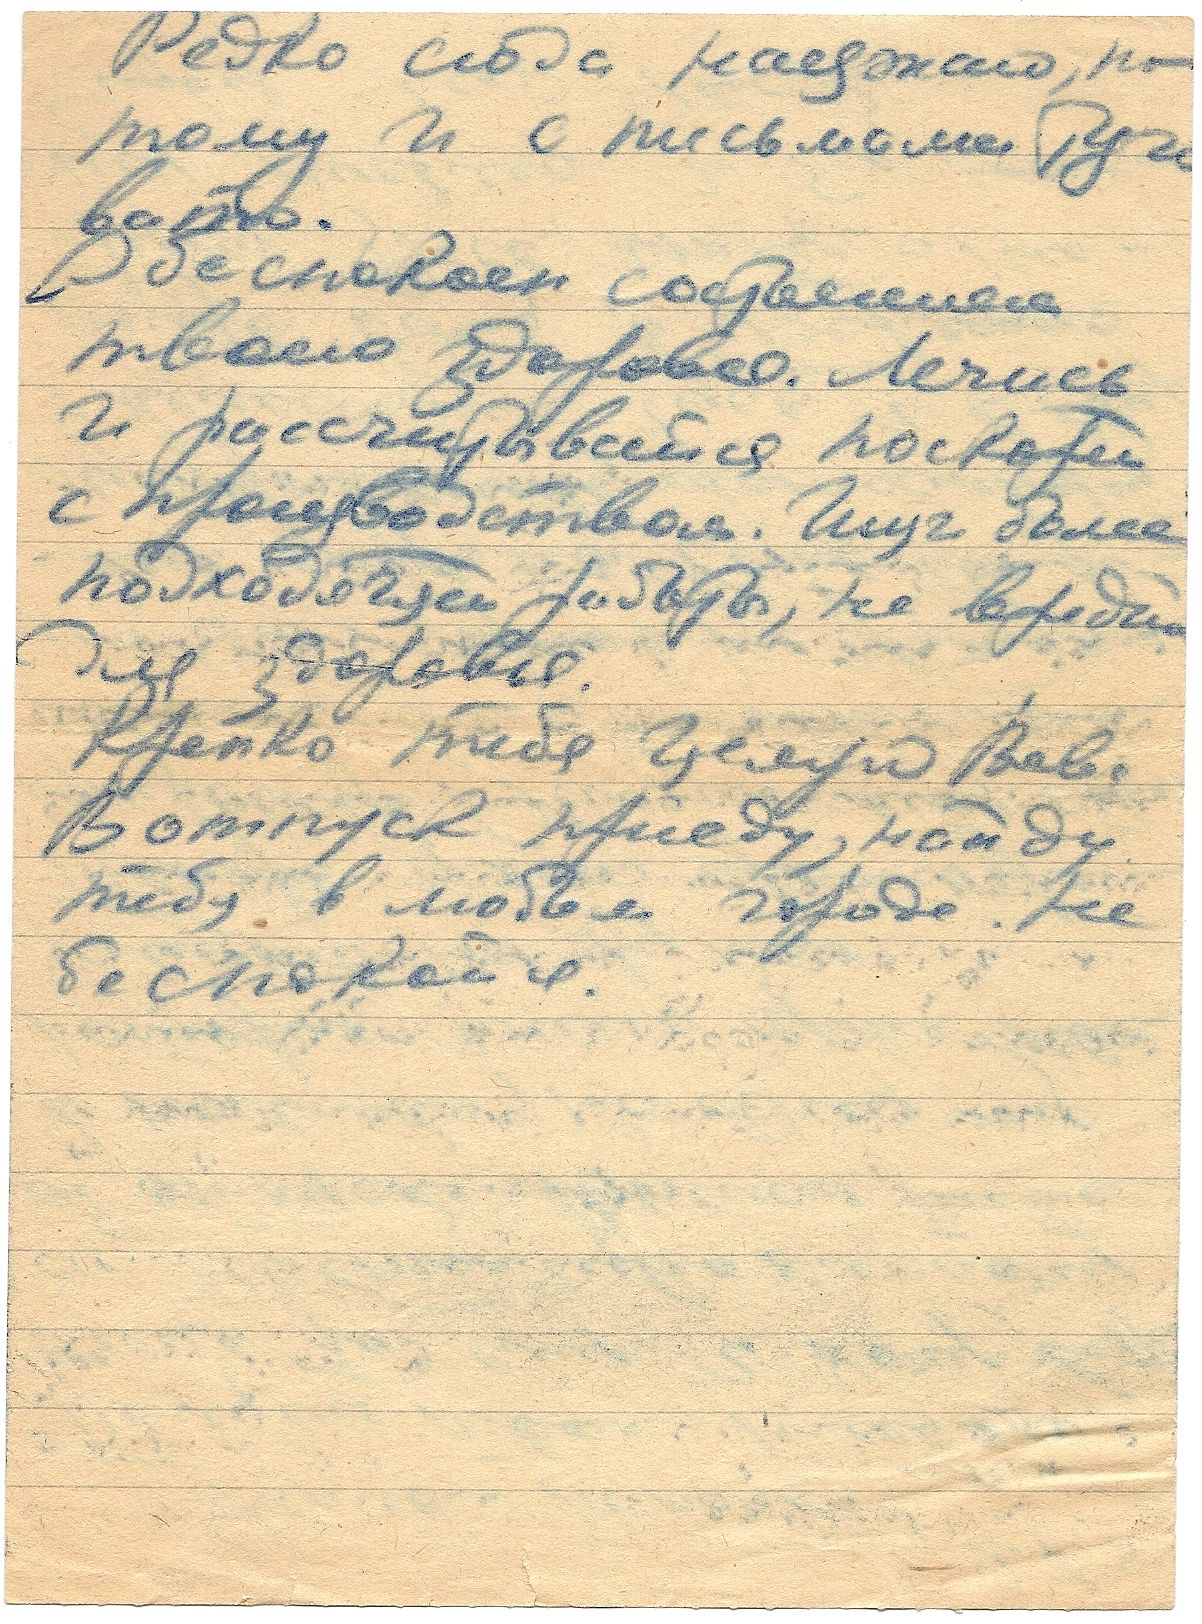 Редко сюда наезжаю, по-
тому и с письмами туго
вато.
Обеспокоен состоянием
твоего здоровья. Лечись
и рассчитывайся поскорей
с производством. Ищи более
подходящей работы, не вредной
для здоровья.
Крепко тебя целую Вов.
В отпуск приеду, найду
тебя в любом городе. Не
беспокойся.